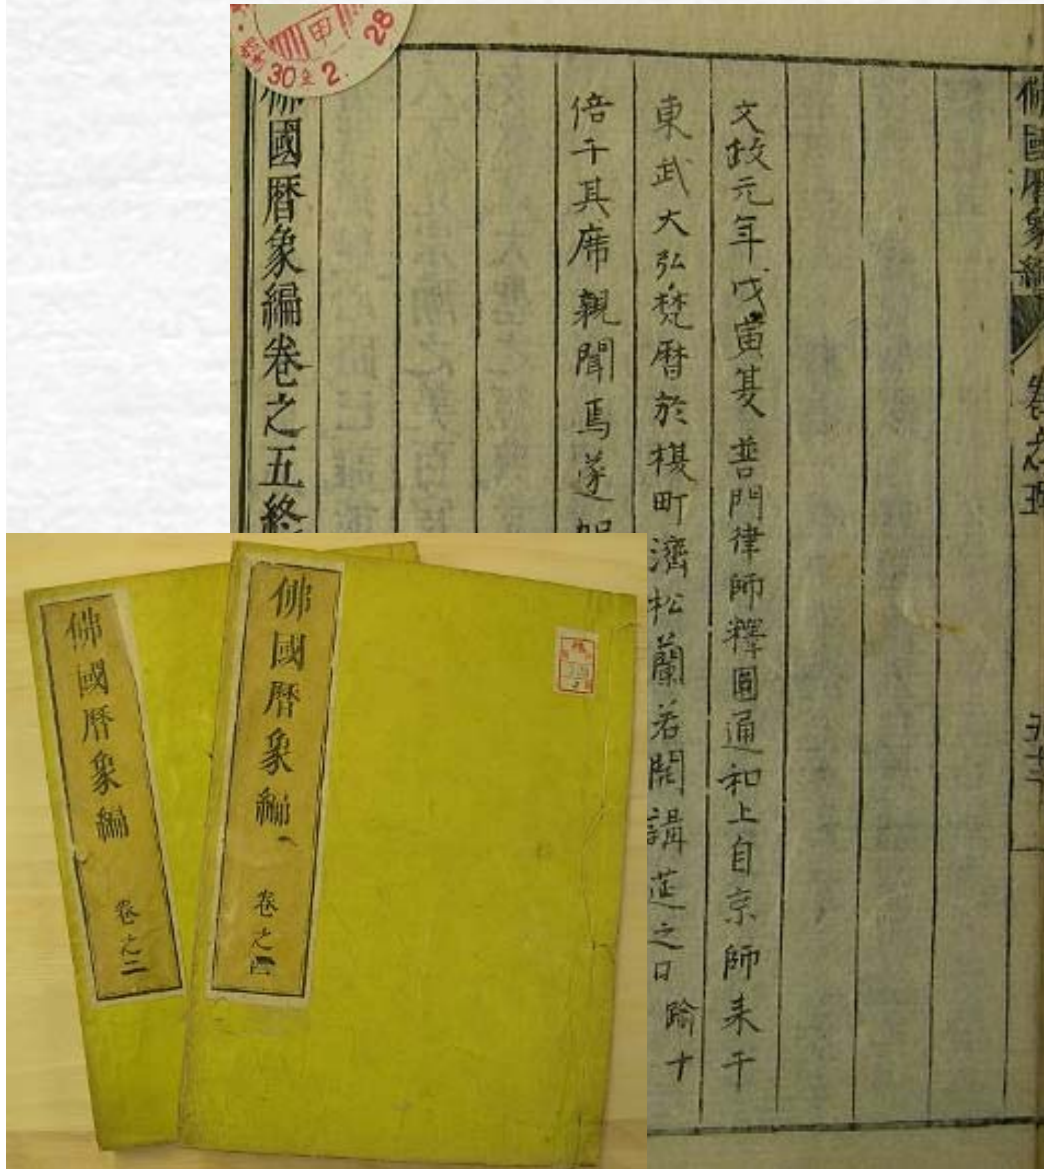 佛國暦象編 卷之五
文政元年戊寅夏普門律師釋圓通和上自京師来于
東武大弘梵暦於榎町濟松蘭若開講莚之日踰十
倍于其席親聞焉遂
佛國暦象編卷之五終
甲
28
30 2
佛國暦象編 卷之四
佛國暦象編 卷之二